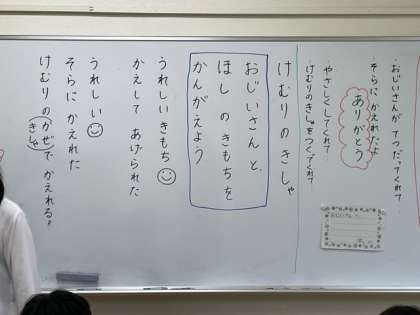 ・おじいさんが てつだってくれて…
・そらに かえれたよ
ありがとう
・やさしくしてくれて…
・けむりのきしゃをつくってくれて…
けむりの きしゃ
おじいさんと、
ほしの きもちを
かんがえよう
うれしい きもち
かえして あげられた
うれしい
そらに かえれた
けむりの かぜで かえれる？
きしゃ